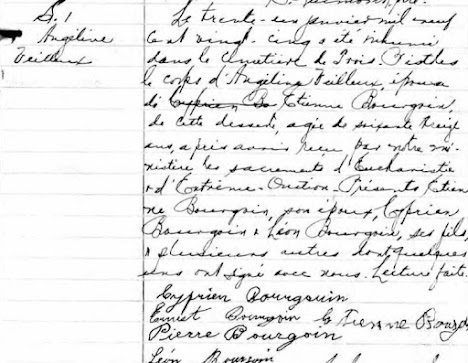 S. 1
Angéline
Veilleux
Le trente-un janvier mil neuf
cent vingt-cinq a été inhumé
dans le cimetière de Trois Pistoles
le corps d'Angéline Veilleux, épouse
de Cyprien Bo Etienne Bourgoin,
de cette desserte, agée de soixante treize
ans, après avoir reçu par notre mi-
nistère les sacrements d'Eucharistie
& d'Extrême-Onction. Présents Etien-
ne Bourgoin, son époux, Cyprien
Bourgoin & Léon Bourgoin, ses fils,
& plusieurs autres dont quelques
uns ont signé avec nous. Lecture faite.
Cyprien Bourgouin
Ernest Bourgoin Etienne Bourg
Pierre Bourgoin
Léon Bourgoin